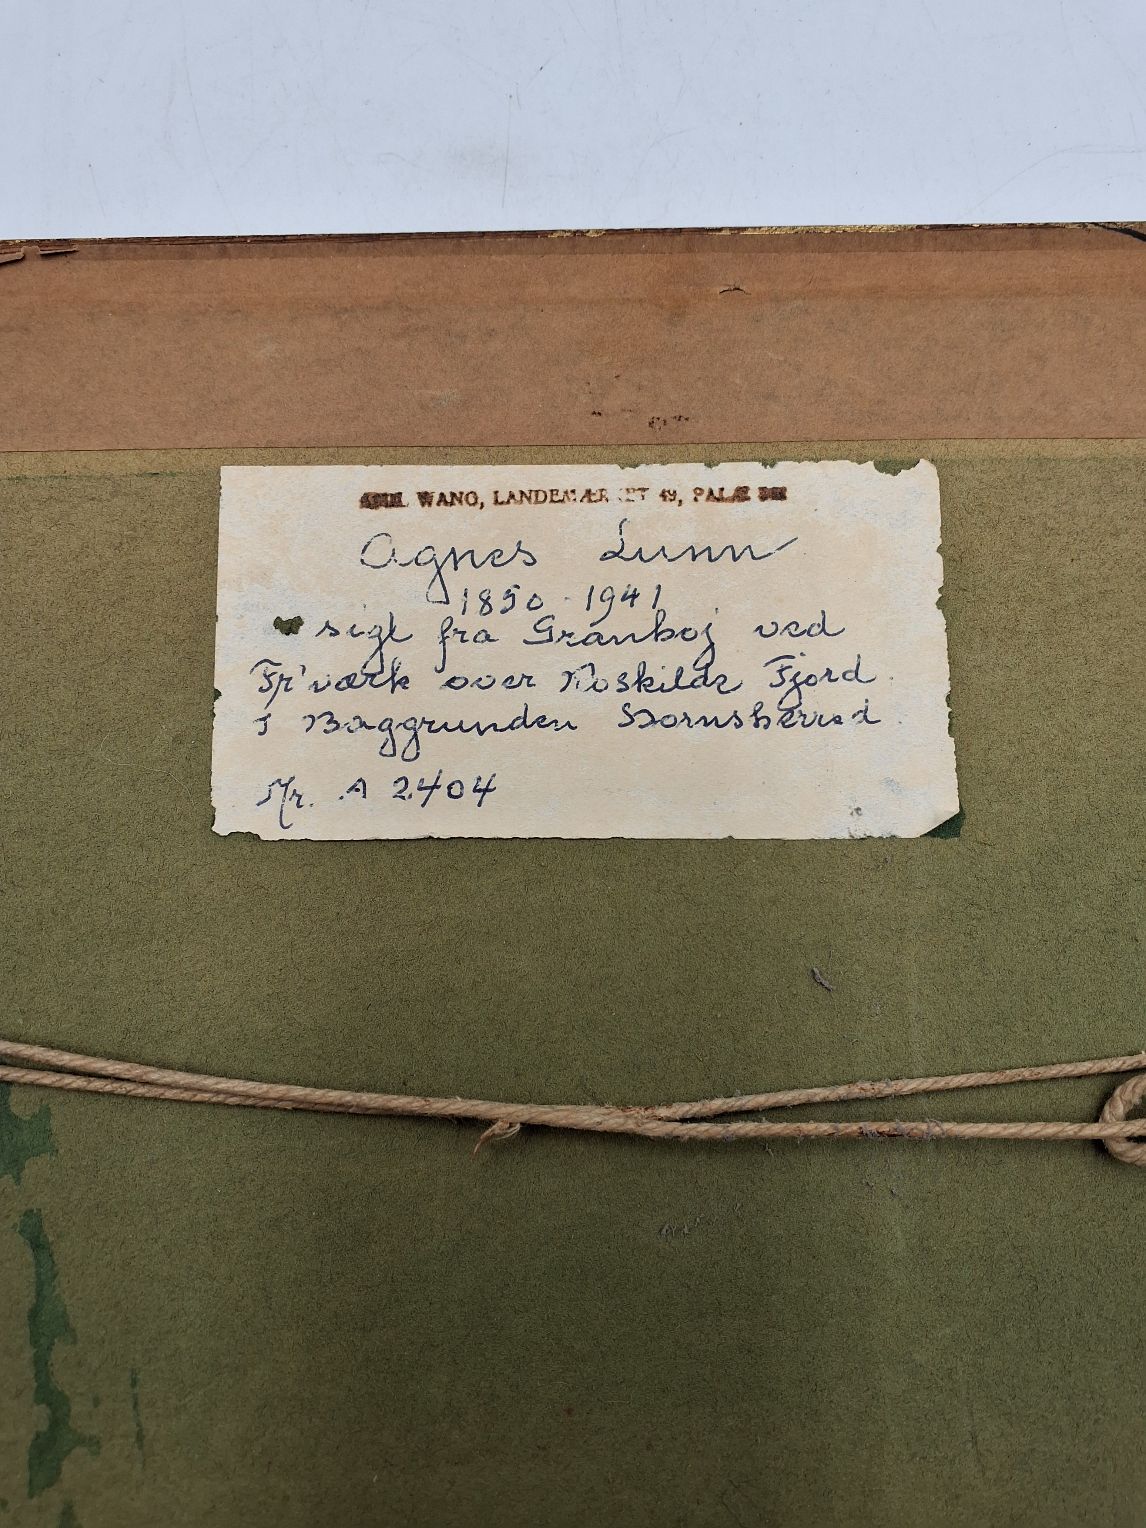 WANG, LANDEMÆRKET 49, PALÆ
Agnes Lunn
1850 - 1941
sigt fra Granhøj ved
Fr'værk over Roskilde Fjord
I Baggrunden Hornsherred
Nr. A 2404